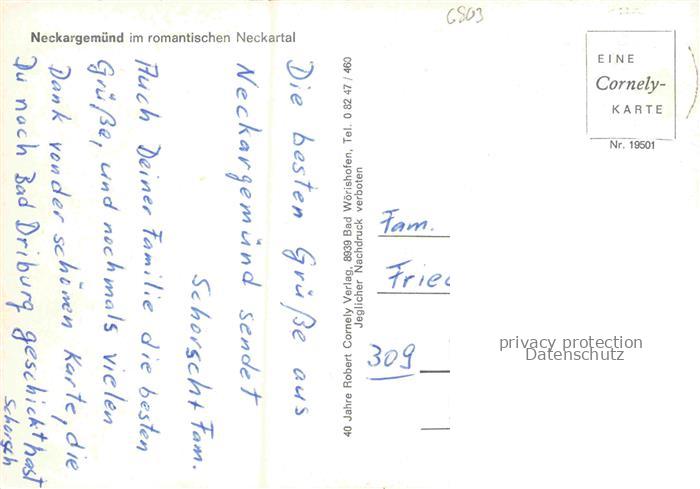 6803
Neckargemünd im romantischen Neckartal
Die besten Grüße aus
Neckargemünd sendet
Schorsch + Fam.
Auch Deiner Familie die besten
Grüße, und nochmals vielen
Dank von der schönen Karte, die
Du nach Bad Driburg geschickt hast
Schorsch
40 Jahre Robert Cornely Verlag, 8939 Bad Wörishofen, Tel. 0 82 47 / 460
Jeglicher Nachdruck verboten
EINE
Cornely-
KARTE
Nr. 19501
Fam.
Fried
309
privacy protection
Datenschutz